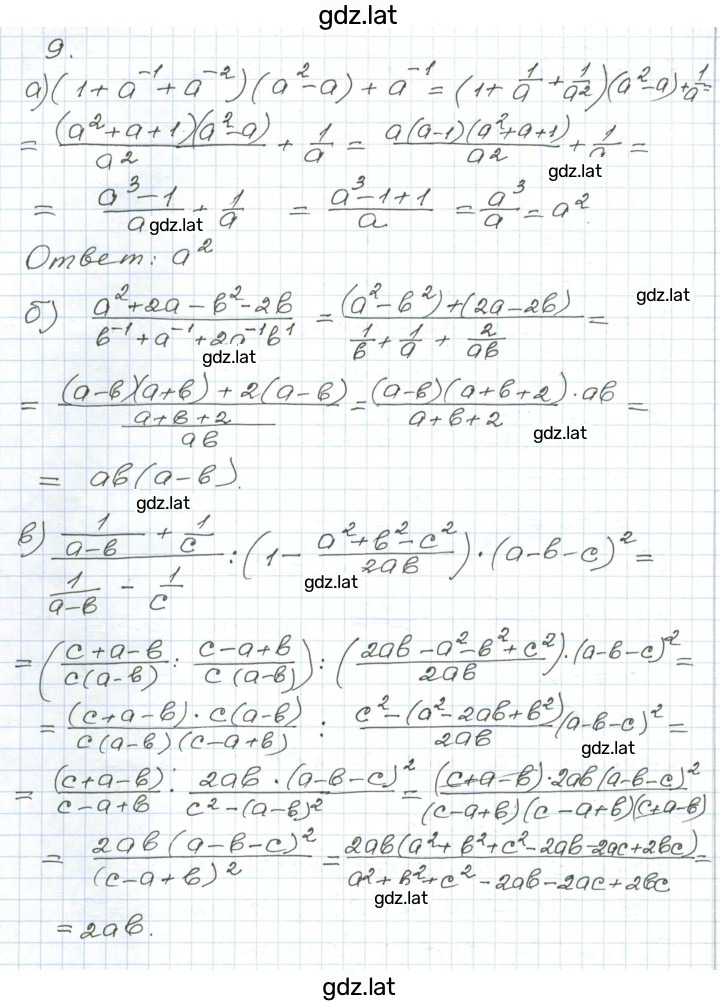 gdz.lat
9.
а) (1 + a⁻¹ + a⁻²)(a² - a) + a⁻¹ = (1 + 1/a + 1/a²)(a² - a) + 1/a =
= (a² + a + 1)(a² - a)/a² + 1/a = a(a-1)(a² + a + 1)/a² + 1/a =
gdz.lat
= (a³ - 1)/a + 1/a = (a³ - 1 + 1)/a = a³/a = a²
gdz.lat
Ответ: a²
б) (a² + 2a - b² - 2b)/(b⁻¹ + a⁻¹ + 2a⁻¹b¹) = ((a² - b²) + (2a - 2b))/(1/b + 1/a + 2/ab) =
gdz.lat
gdz.lat
= ((a-b)(a+b) + 2(a-b))/((a+b+2)/ab) = (a-b)(a+b+2)·ab/(a+b+2) =
gdz.lat
= ab(a-b).
gdz.lat
в) (1/(a-b) + 1/c)/(1/(a-b) - 1/c) : (1 - (a² + b² - c²)/2ab)·(a-b-c)² =
gdz.lat
= ((c+a-b)/c(a-b) : (c-a+b)/c(a-b)) : ((2ab - a² - b² + c²)/2ab)·(a-b-c)² =
= (c+a-b)·c(a-b)/c(a-b)(c-a+b) : (c² - (a² - 2ab + b²))/2ab (a-b-c)² =
gdz.lat
= (c+a-b)/(c-a+b) : 2ab·(a-b-c)²/(c² - (a-b)²) = (c+a-b)·2ab(a-b-c)²/(c-a+b)(c-a+b)(c+a-b)
= 2ab(a-b-c)²/(c-a+b)² = 2ab(a² + b² + c² - 2ab - 2ac + 2bc)/(a² + b² + c² - 2ab - 2ac + 2bc) =
gdz.lat
= 2ab.
gdz.lat